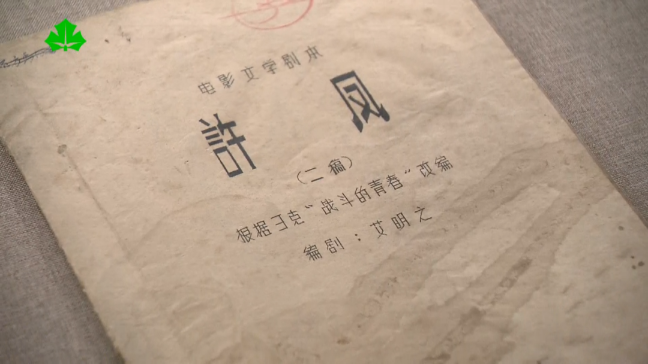 电影文学剧本
許凤
(二稿)
根据雪克“战斗的青春”改编
编剧：艾明之